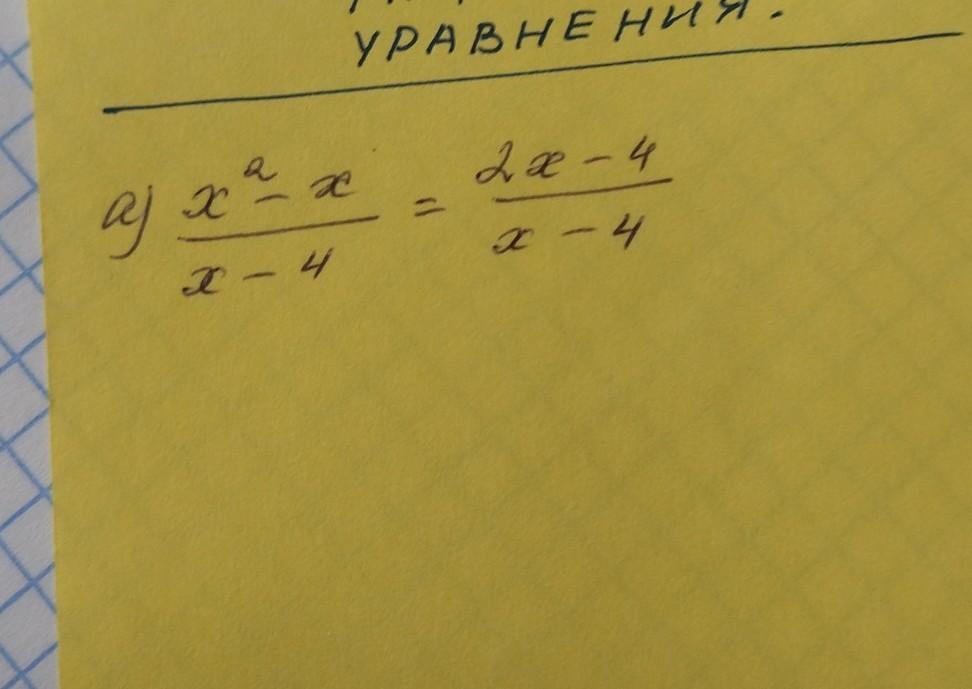 УРАВНЕНИЯ.
а) x² - x / x - 4 = 2x - 4 / x - 4